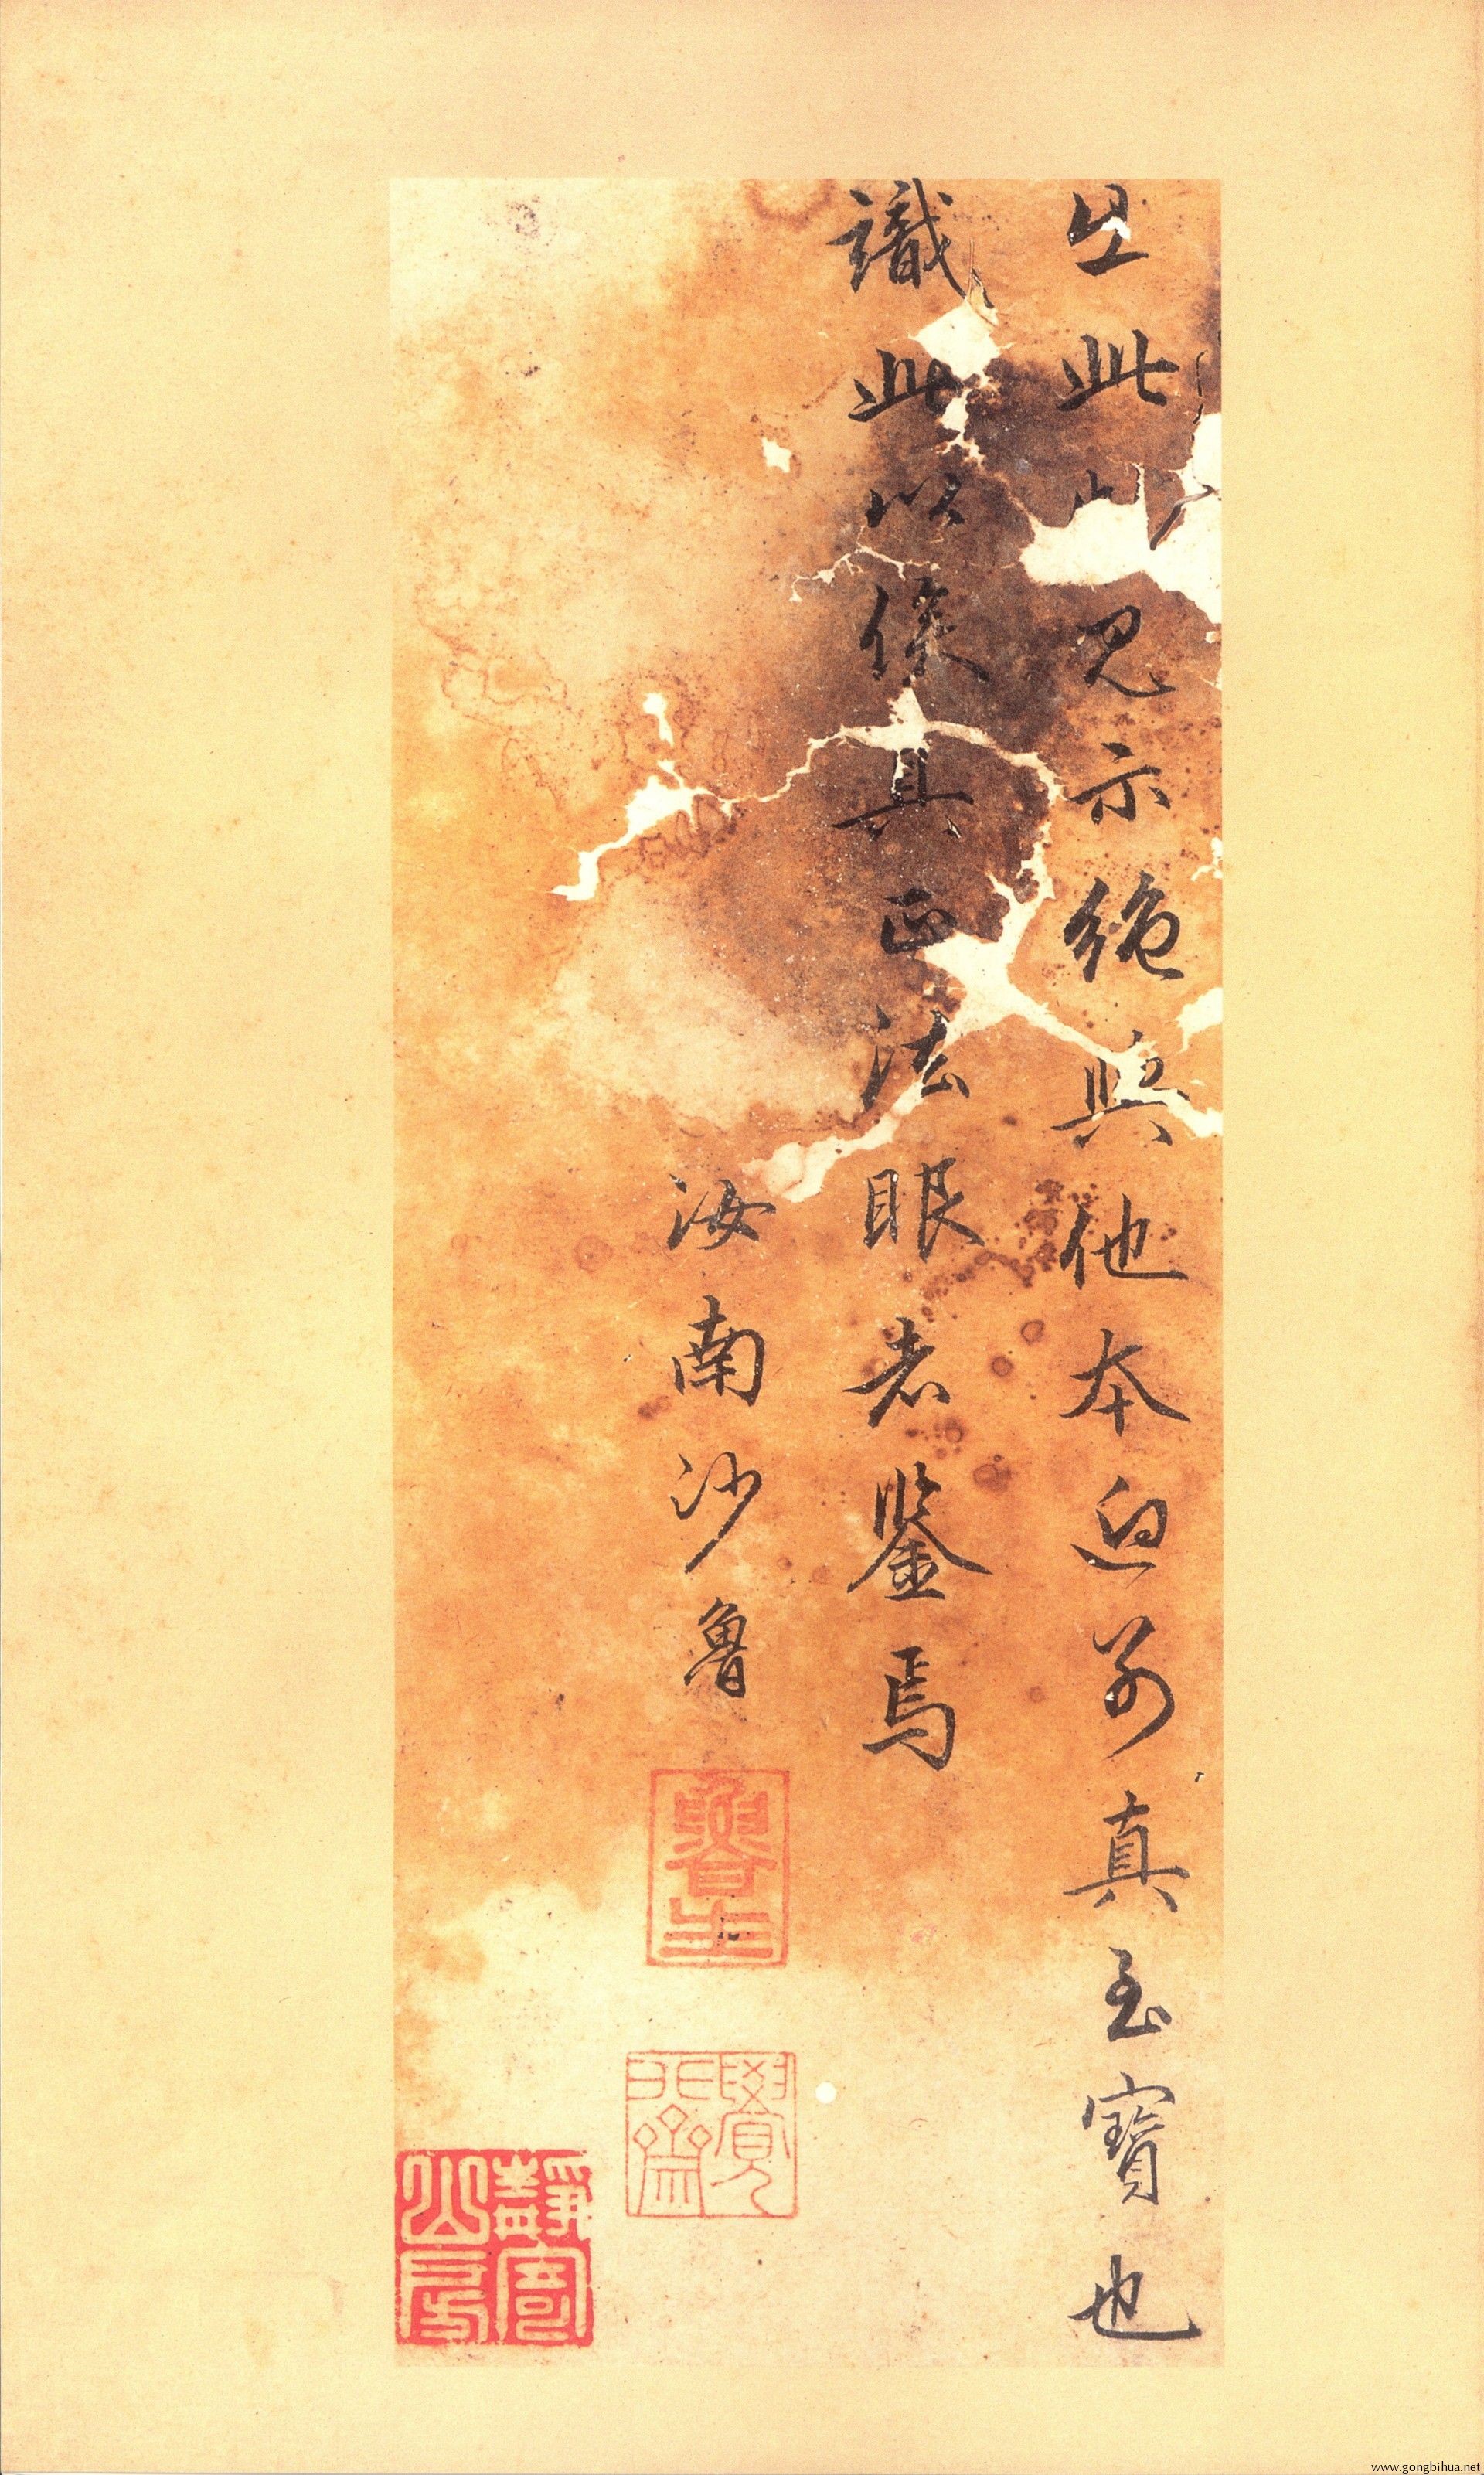 出此見示絶與他本迥别真至寶也
識此以俟具正法眼者鑒焉
汝南沙魯
www.gongbihua.net